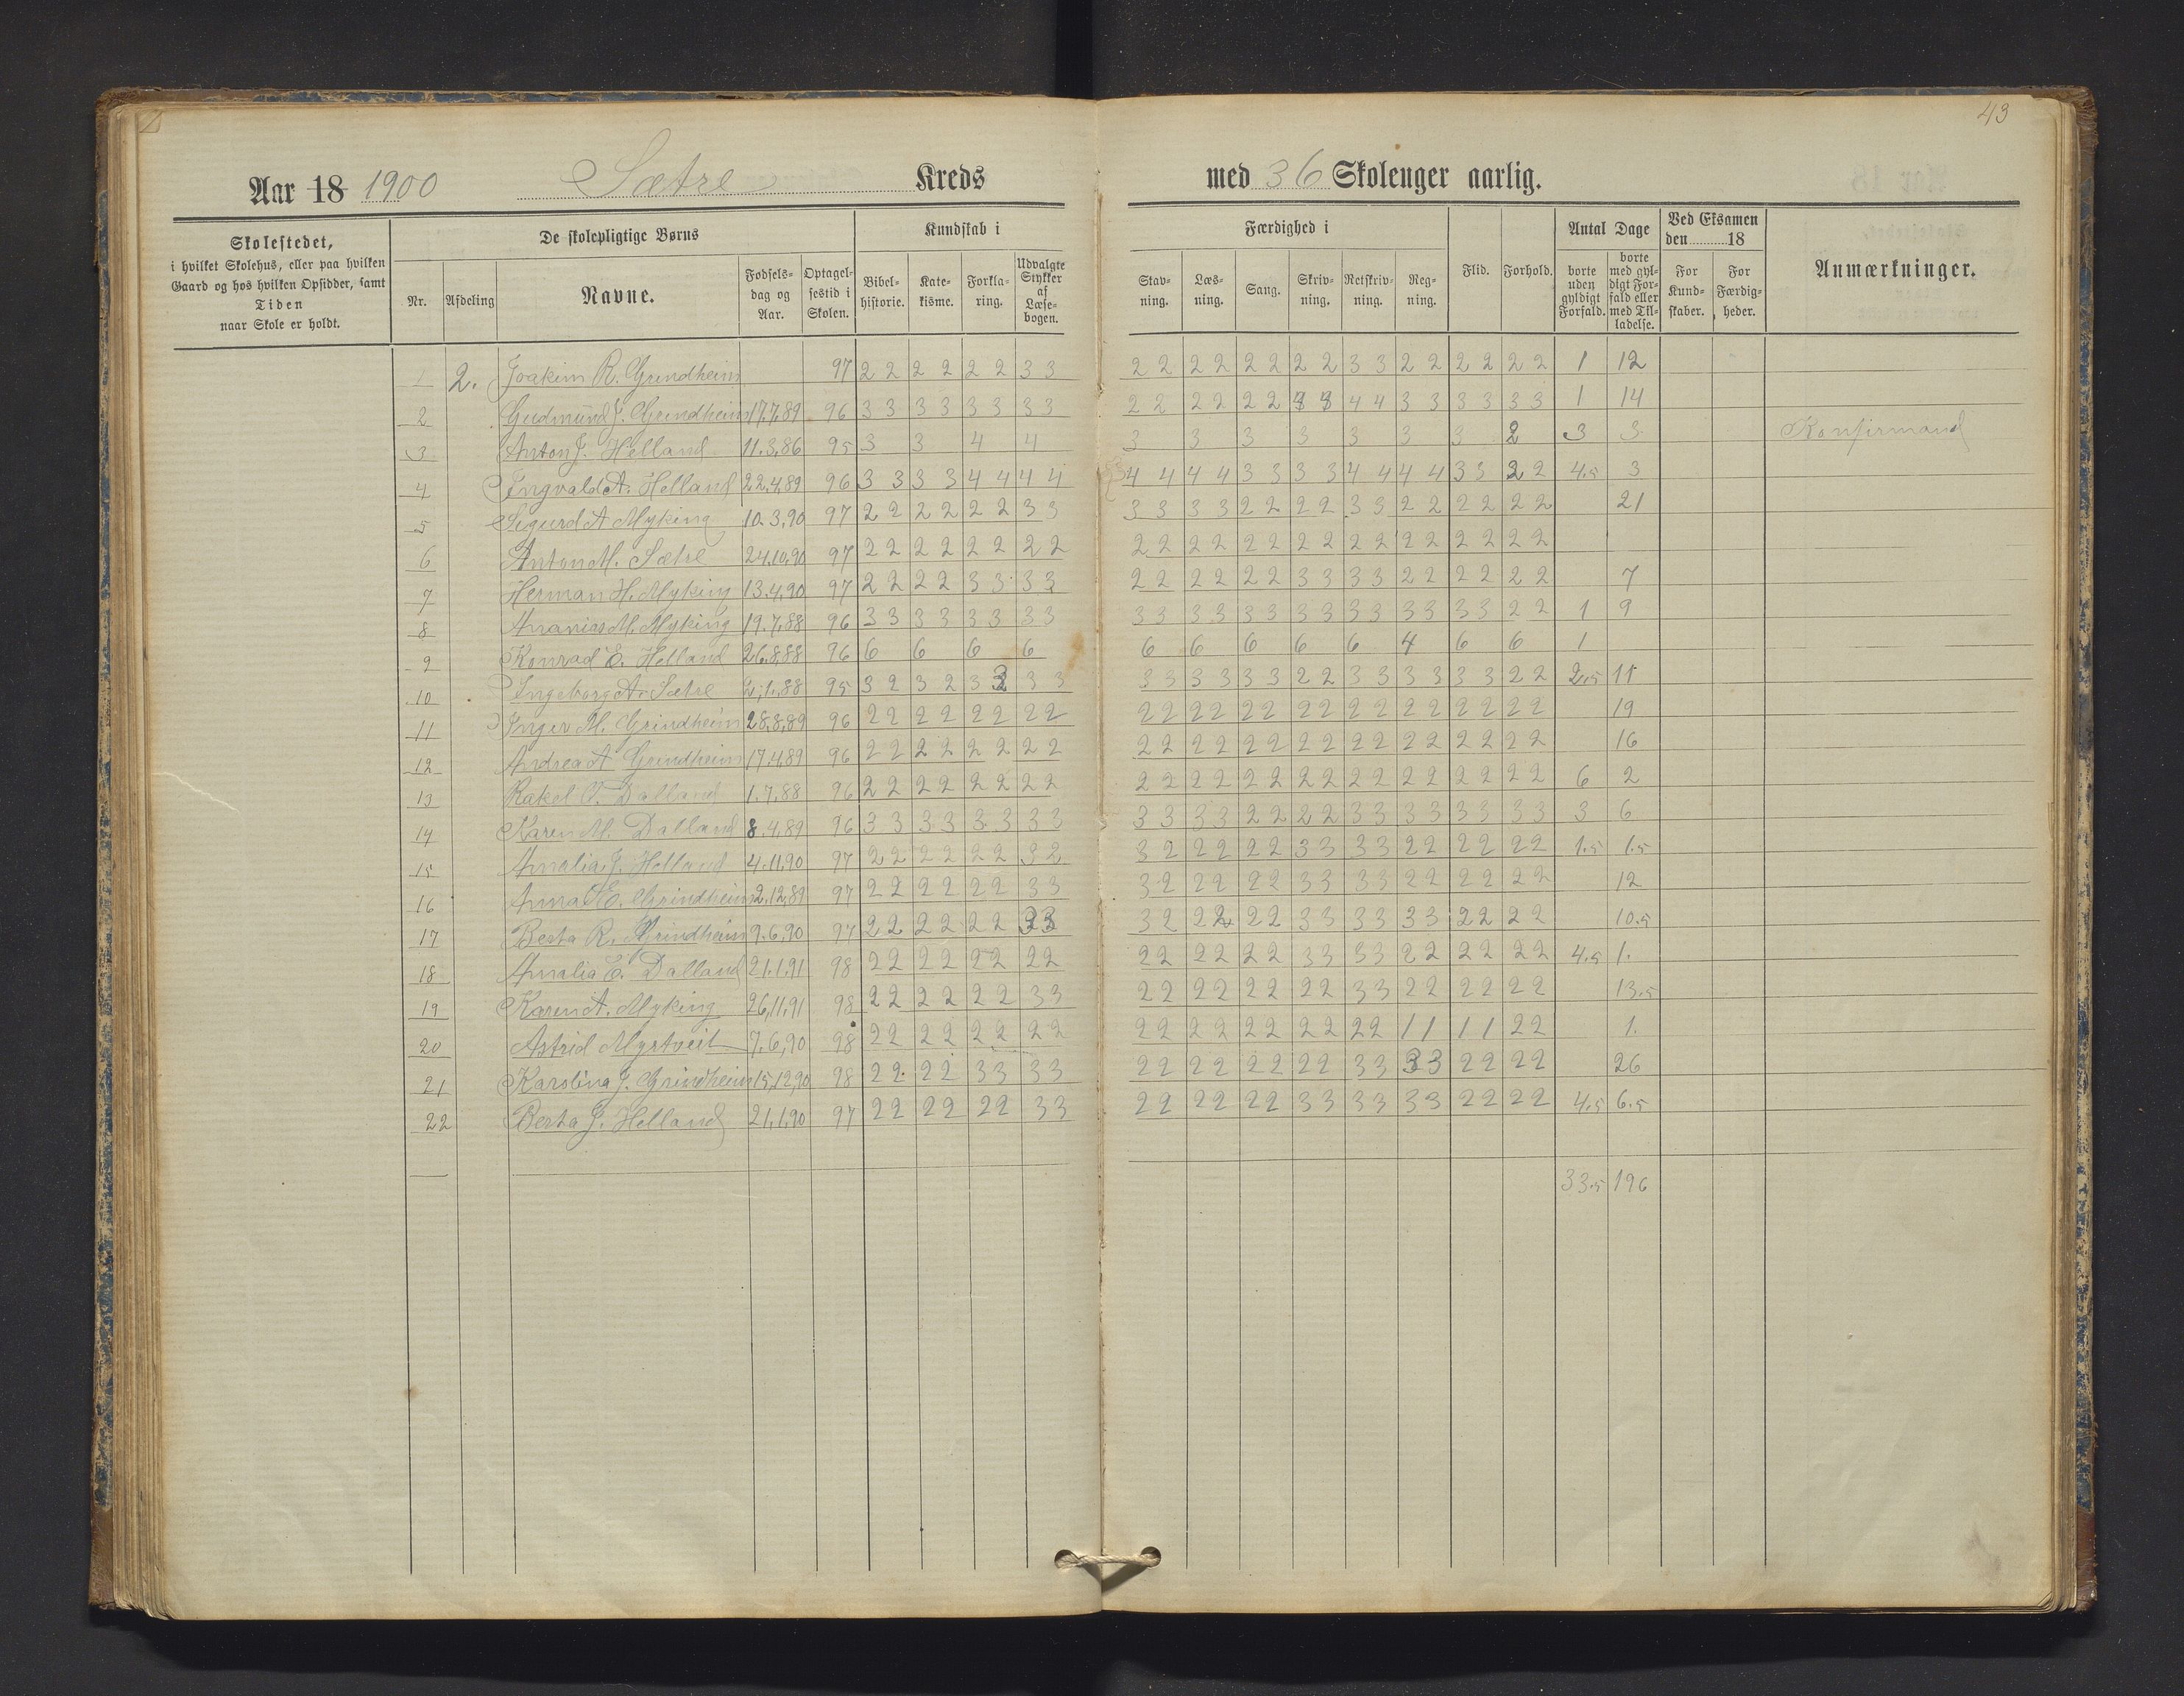 43
Aar 18 1900 Sætre Kreds med 36 Skoleuger aarlig.
Skolestedet, i hvilket Skolehus, eller paa hvilken Gaard og hos hvilken Opsidder, samt Tiden naar Skole er holdt.
De skolepligtige Børns
Nr. Afdeling Navne. Fødselsdag og Aar. Optagelsestid i Skolen.
Kundskab i
Bibelhistorie. Katekisme. Forklaring. Udvalgte Stykker af Læsebogen.
Færdighed i
Stavning. Læsning. Sang. Skrivning. Retskrivning. Regning.
Flid. Forhold.
Antal Dage
borte uden gyldigt Forfald. borte med gyldigt Forfald eller med Tilladelse.
Ved Eksamen den 18
For Kundskaber. For Færdigheder.
Anmærkninger.
1 2. Joakim R. Grindheim 97 2 2 2 2 2 2 3 3 2 2 2 2 2 2 2 2 3 3 2 2 2 2 2 2 1 12
2 Gudmund J. Grindheim 17.7.89 96 3 3 3 3 3 3 3 3 2 2 2 2 2 2 3 3 4 4 3 3 3 3 3 3 1 14
3 Anton J. Helland 11.3.86 95 3 3 4 4 3 3 3 3 3 3 3 2 3 3 Konfirmand
4 Ingvald A. Helland 22.4.89 96 3 3 3 3 4 4 4 4 4 4 4 4 3 3 3 3 4 4 4 4 3 3 2 2 4.5 3
5 Sigurd A Myking 10.3.90 97 2 2 2 2 2 2 3 3 3 3 3 3 2 2 2 2 3 3 2 2 2 2 2 2 21
6 Anton M. Sætre 24.10.90 97 2 2 2 2 2 2 2 2 2 2 2 2 2 2 2 2 2 2 2 2 2 2 2 2
7 Herman H. Myking 13.4.90 97 2 2 2 2 3 3 3 3 2 2 2 2 2 2 3 3 3 3 2 2 2 2 2 2 7
8 Ananias M. Myking 19.7.88 96 3 3 3 3 3 3 3 3 3 3 3 3 3 3 3 3 3 3 3 3 3 3 2 2 1 9
9 Konrad E. Helland 26.8.88 96 6 6 6 6 6 6 6 6 6 4 6 6 1
10 Ingeborg A. Sætre 2.1.88 95 3 2 3 2 3 2 3 3 3 3 3 3 3 3 2 2 3 3 3 3 3 3 2 2 2.5 11
11 Inger M. Grindheim 28.8.89 96 2 2 2 2 2 2 2 2 2 2 2 2 2 2 2 2 2 2 2 2 2 2 2 2 19
12 Andrea A Grindheim 17.4.89 96 2 2 2 2 2 2 2 2 2 2 2 2 2 2 2 2 2 2 2 2 2 2 2 2 16
13 Rakel O. Dalland 1.7.88 96 2 2 2 2 2 2 2 2 2 2 2 2 2 2 2 2 2 2 2 2 2 2 2 2 6 2
14 Karen M. Dalland 8.4.89 96 3 3 3 3 3 3 3 3 3 3 3 3 2 2 2 2 3 3 3 3 3 3 3 3 3 6
15 Amalia J. Helland 4.11.90 97 2 2 2 2 2 2 3 2 3 2 2 2 2 2 3 3 3 3 2 2 2 2 2 2 1.5 1.5
16 Anna E. Grindheim 2.12.89 97 2 2 2 2 2 2 3 3 3 2 2 2 2 2 3 3 3 3 2 2 2 2 2 2 12
17 Berta R. Grindheim 9.6.90 97 2 2 2 2 2 2 3 3 3 2 2 2 2 2 3 3 3 3 3 3 2 2 2 2 10.5
18 Amalia E. Dalland 21.1.91 98 2 2 2 2 2 2 2 2 2 2 2 2 2 2 3 3 3 3 2 2 2 2 2 2 4.5 1.
19 Karen A. Myking 26.11.91 98 2 2 2 2 2 2 3 3 2 2 2 2 2 2 2 2 3 3 2 2 2 2 2 2 13.5
20 Astrid Myrtveit 7.6.90 98 2 2 2 2 2 2 2 2 2 2 2 2 2 2 2 2 2 2 1 1 1 1 2 2 1.
21 Karolina J. Grindheim 15.12.90 98 2 2 2 2 3 3 3 3 2 2 2 2 2 2 2 2 3 3 3 3 2 2 2 2 26
22 Berta J. Helland 21.1.90 97 2 2 2 2 2 2 3 3 2 2 2 2 2 2 3 3 3 3 3 3 2 2 2 2 4.5 6.5
33.5 196